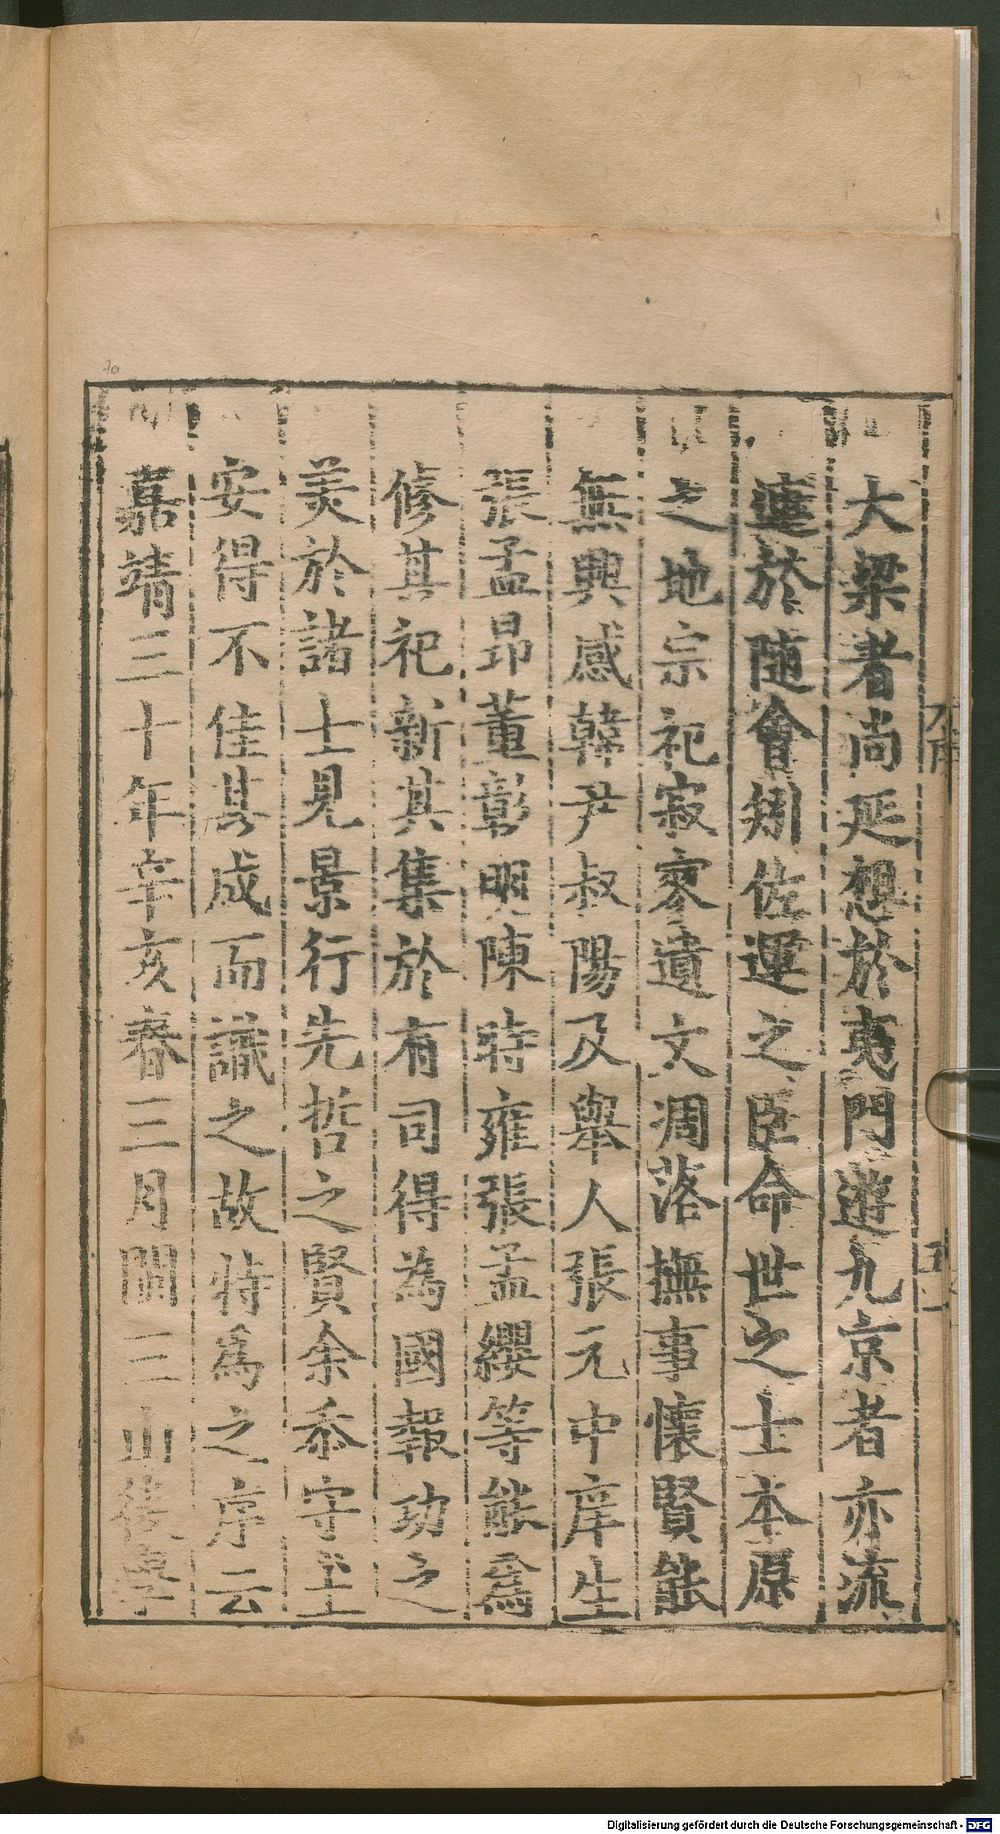 大梁者尚延想於夷門遊九京者亦流
連於随會矧佐運之臣命世之士本原
之地宗祀寂寥遺文凋落撫事懷賢能
無興感韓尹叔陽及舉人張元中庠生
張孟昂董彰明陳時雍張孟纓等能為
修其祀新其集於有司得為國報功之
美於諸士見景行先哲之賢余忝守土
安得不佳其成而識之故特為之序云
嘉靖三十年辛亥春三月閩三山後學
70
Digitalisierung gefördert durch die Deutsche Forschungsgemeinschaft - DFG